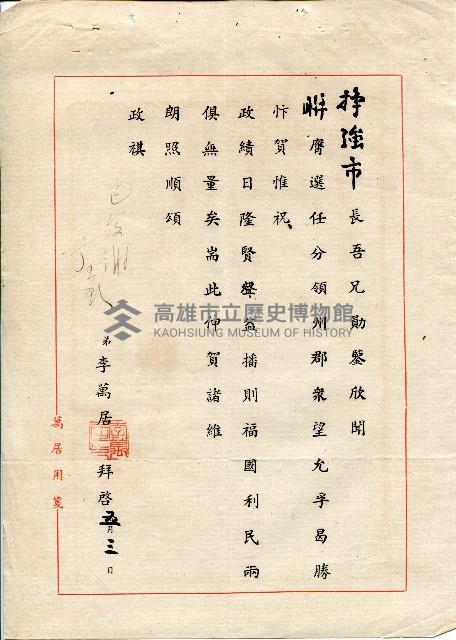 持強市長吾兄勛鑒欣聞
榮膺選任分領州郡衆望允孚曷勝
忭賀惟祝
政績日隆賢聲益播則福國利民兩
俱無量矣耑此伸賀諸維
朗照順頌
政祺
弟李萬居拜啓五月三日
萬居用箋
高雄市立歷史博物館
KAOHSIUNG MUSEUM OF HISTORY